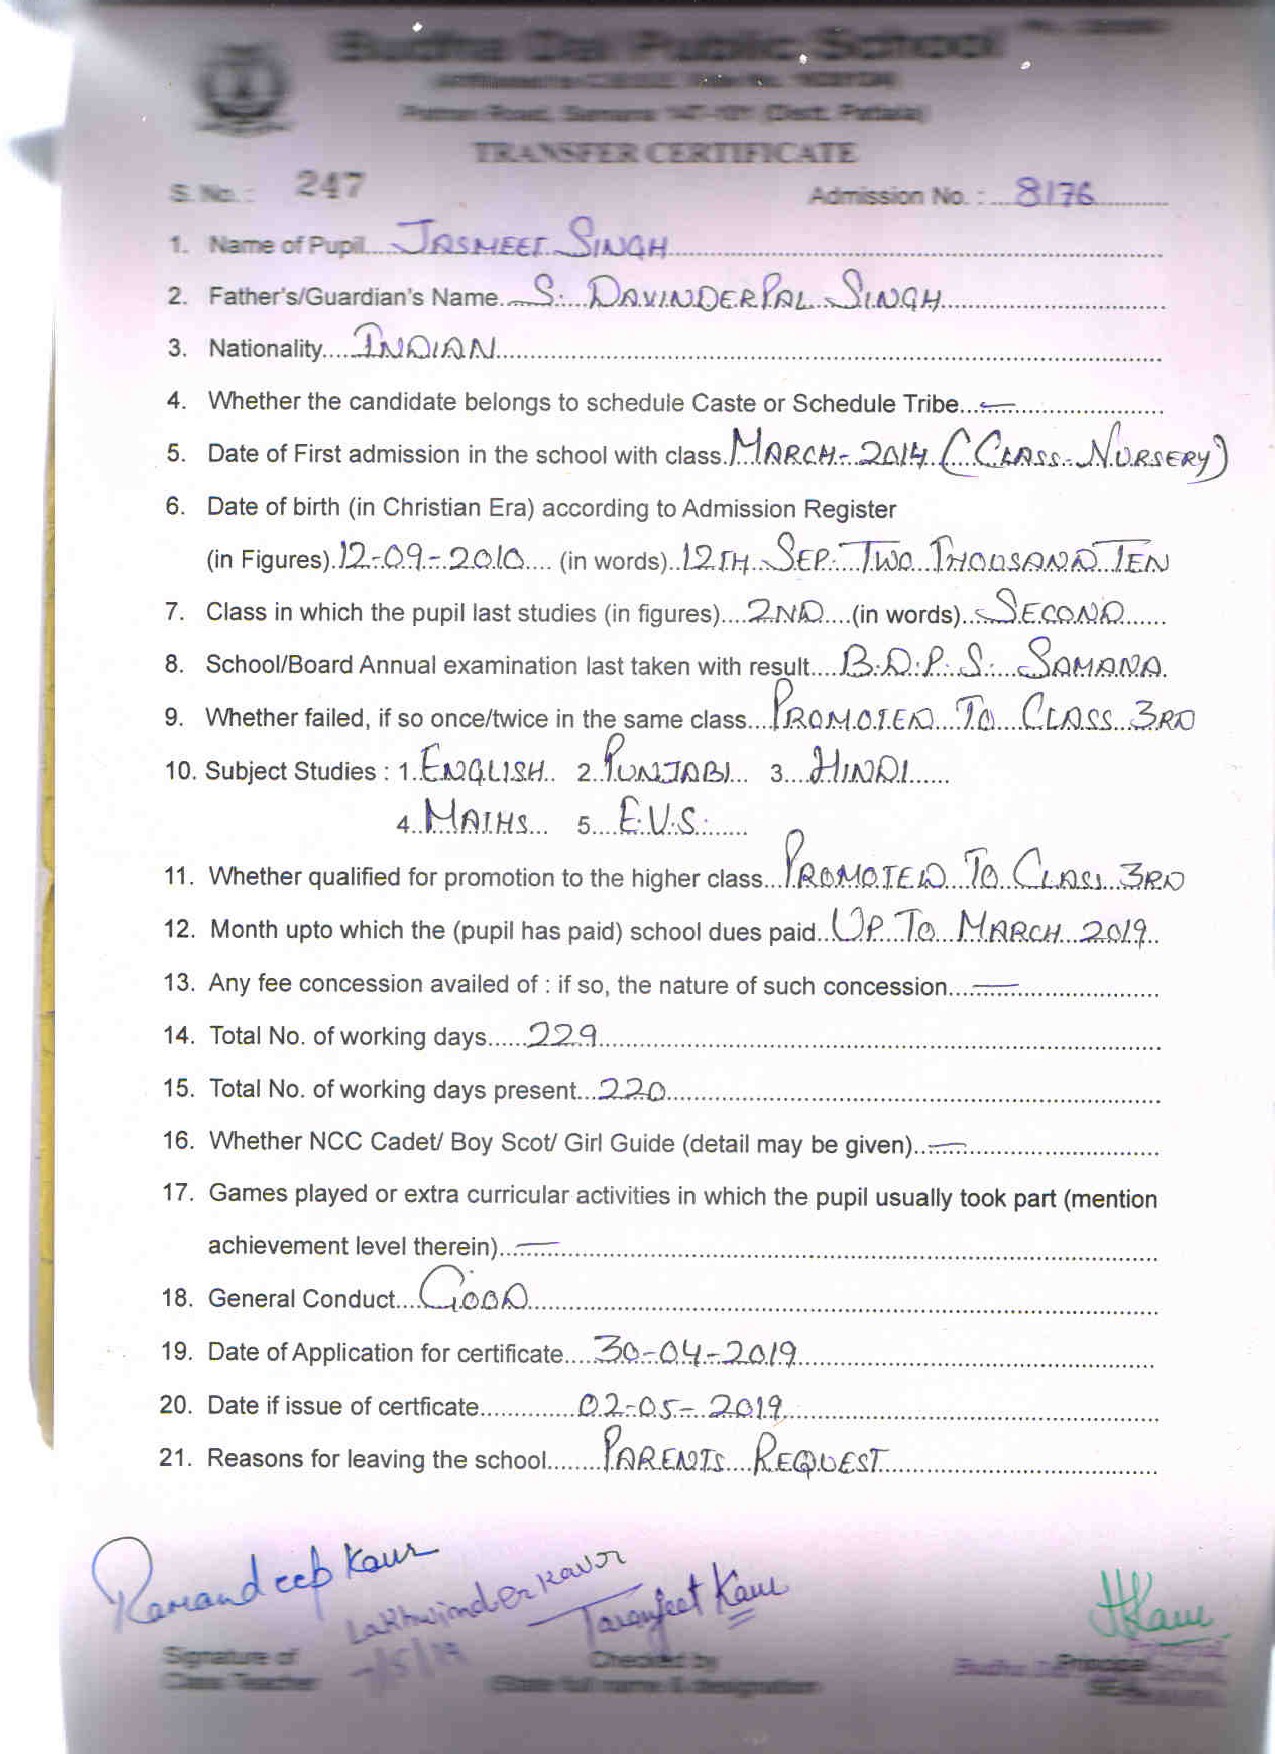 Budha Dal Public School
Patran Road, Samana 147-101 (Distt. Patiala)
TRANSFER CERTIFICATE
S. No. : 247 Admission No. : 8176
1. Name of Pupil JASMEET SINGH
2. Father's/Guardian's Name S. DAVINDERPAL SINGH
3. Nationality INDIAN
4. Whether the candidate belongs to schedule Caste or Schedule Tribe —
5. Date of First admission in the school with class MARCH-2014 (CLASS-NURSERY)
6. Date of birth (in Christian Era) according to Admission Register
(in Figures) 12-09-2010 (in words) 12TH SEP. TWO THOUSAND TEN
7. Class in which the pupil last studies (in figures) 2ND (in words) SECOND
8. School/Board Annual examination last taken with result B.D.P.S. SAMANA
9. Whether failed, if so once/twice in the same class PROMOTED TO CLASS 3RD
10. Subject Studies : 1. ENGLISH 2. PUNJABI 3. HINDI
4. MATHS 5. E.V.S.
11. Whether qualified for promotion to the higher class PROMOTED TO CLASS 3RD
12. Month upto which the (pupil has paid) school dues paid UP TO MARCH 2019
13. Any fee concession availed of : if so, the nature of such concession —
14. Total No. of working days 229
15. Total No. of working days present 220
16. Whether NCC Cadet/ Boy Scot/ Girl Guide (detail may be given) —
17. Games played or extra curricular activities in which the pupil usually took part (mention
achievement level therein) —
18. General Conduct GOOD
19. Date of Application for certificate 30-04-2019
20. Date if issue of certficate 02-05-2019
21. Reasons for leaving the school PARENTS REQUEST
Ramandeep Kaur Lakhwinder Kaur Taranjeet Kaur
Signature of Checked by Principal
Class Teacher (State full name & designation) SEAL